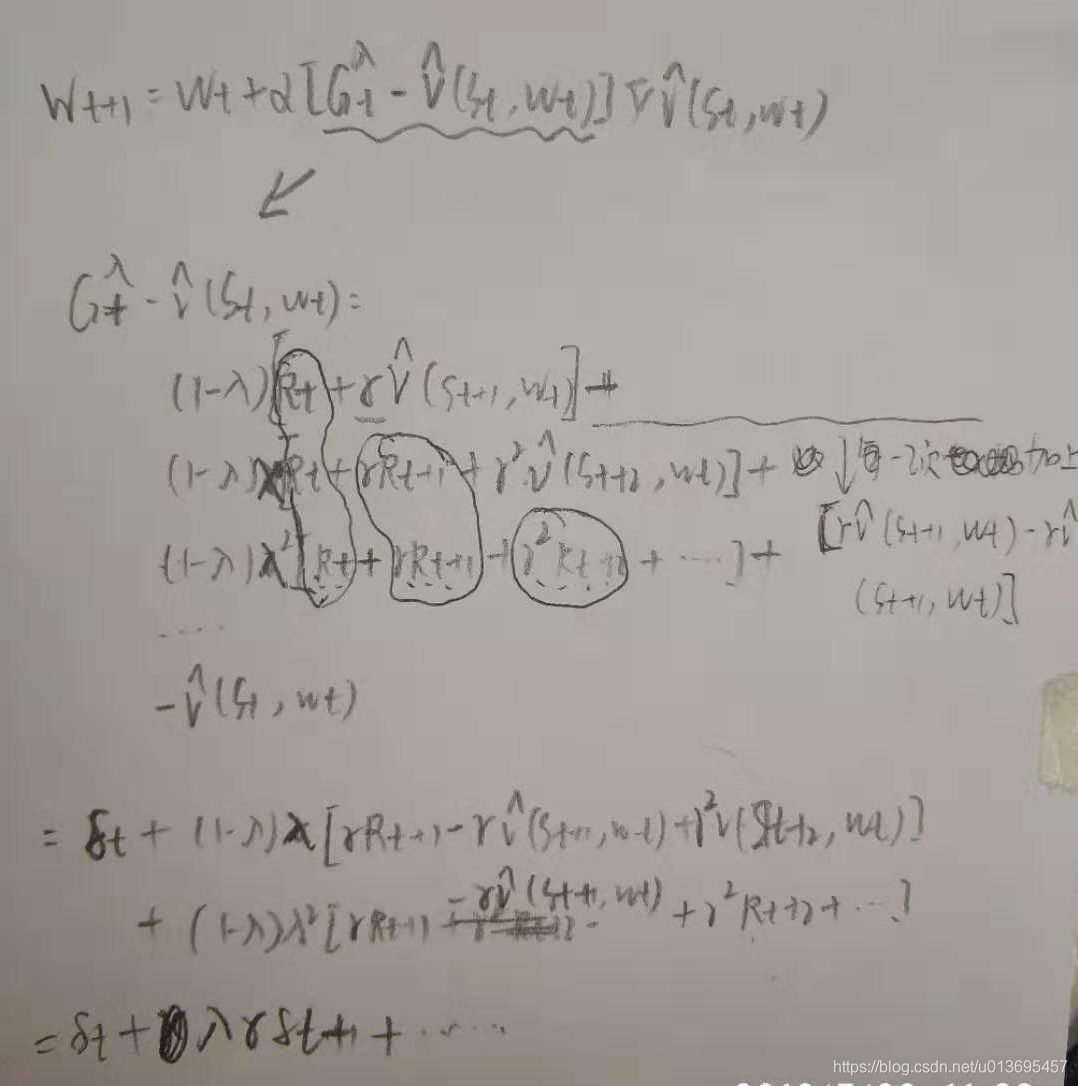 Wt+1 = Wt + α[Gt^λ - V̂(St, Wt)] ∇V̂(St, Wt)
↙
Gt^λ - V̂(St, Wt) =
(1-λ)[Rt + γV̂(St+1, Wt)] +
(1-λ)λ[Rt + γRt+1 + γ²V̂(St+2, Wt)] + ↓每一次 加上
(1-λ)λ²[Rt + γRt+1 + γ²Rt+2 + ····] + [γV̂(St+1, Wt) - γV̂
(St+1, Wt)]
·····
-V̂(St, Wt)
= δt + (1-λ)λ[γRt+1 - γV̂(St+1, Wt) + γ²V(St+2, Wt)]
+ (1-λ)λ²[γRt+1 - γV̂(St+1, Wt) + γ²Rt+2 + ···]
= δt + λγδt+1 + ·····
https://blog.csdn.net/u013695457